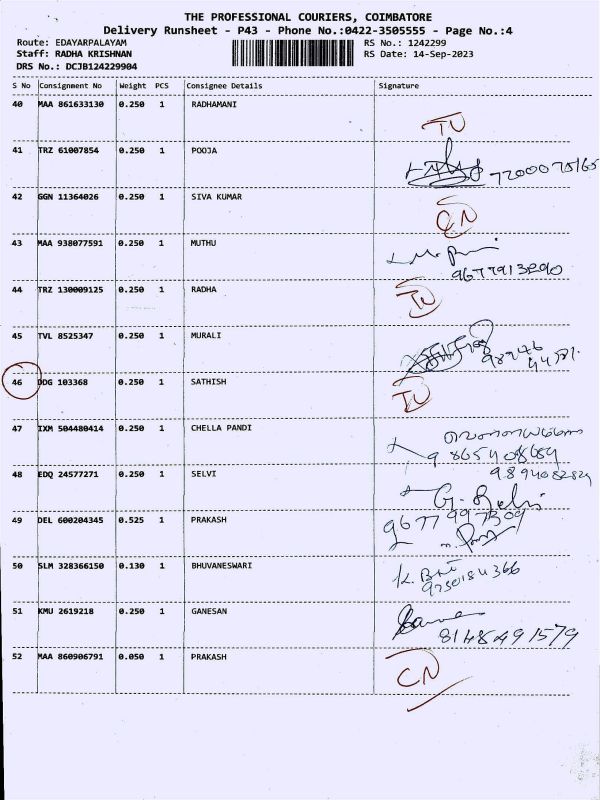 THE PROFESSIONAL COURIERS, COIMBATORE
Delivery Runsheet - P43 - Phone No.:0422-3505555 - Page No.:4
Route: EDAYARPALAYAM RS No.: 1242299
Staff: RADHA KRISHNAN RS Date: 14-Sep-2023
DRS No.: DCJB124229904
S No Consignment No Weight PCS Consignee Details Signature
40 MAA 861633130 0.250 1 RADHAMANI
41 TRZ 61007854 0.250 1 POOJA
42 GGN 11364026 0.250 1 SIVA KUMAR
CN
43 MAA 938077591 0.250 1 MUTHU
44 TRZ 130009125 0.250 1 RADHA
45 TVL 8525347 0.250 1 MURALI
46 DDG 103368 0.250 1 SATHISH
47 IXM 504480414 0.250 1 CHELLA PANDI
48 EDQ 24577271 0.250 1 SELVI
49 DEL 600204345 0.525 1 PRAKASH
50 SLM 328366150 0.130 1 BHUVANESWARI
51 KMU 2619218 0.250 1 GANESAN
8148491579
52 MAA 860906791 0.050 1 PRAKASH
CN